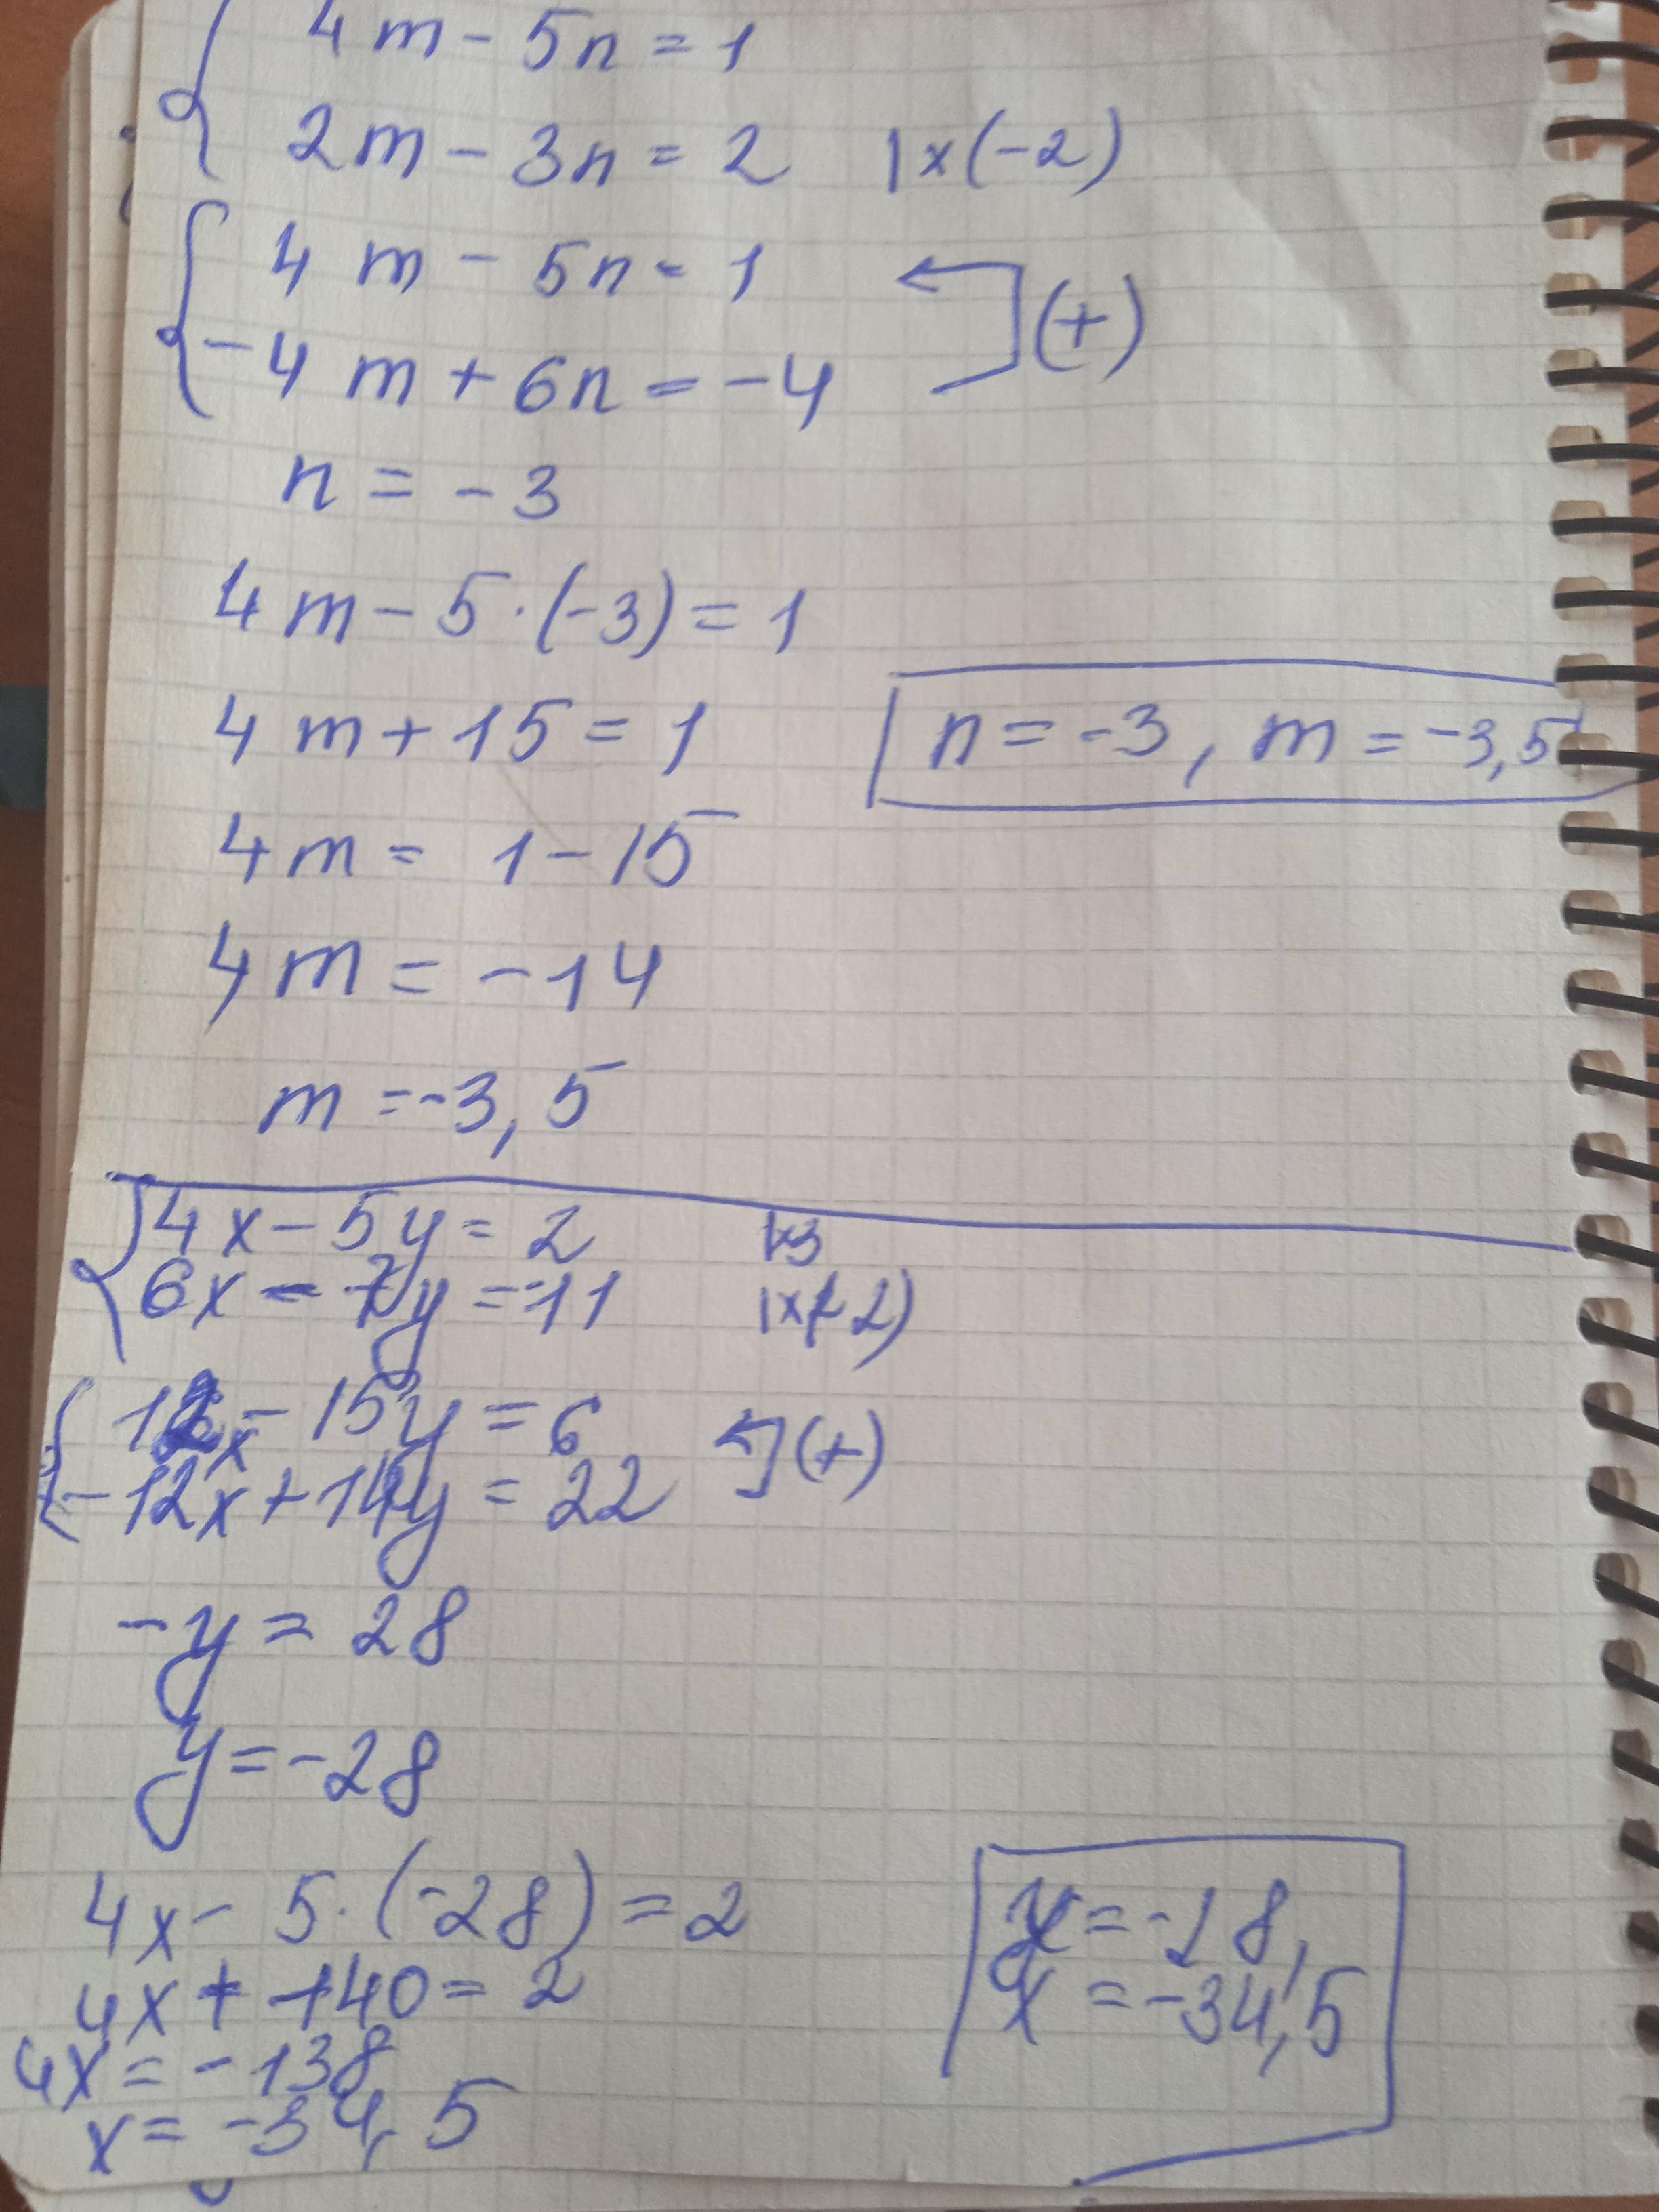 4m - 5n = 1
2m - 3n = 2 | x (-2)
4m - 5n = 1
-4m + 6n = -4 (+)
n = -3
4m - 5·(-3) = 1
4m + 15 = 1
n = -3, m = -3,5
4m = 1 - 15
4m = -14
m = -3,5
4x - 5y = 2 |x3
6x - 7y = -11 |x(-2)
12x - 15y = 6
-12x + 14y = 22 (+)
-y = 28
y = -28
4x - 5·(-28) = 2
4x + 140 = 2
4x = -138
x = -34,5
y = -28,
x = -34,5